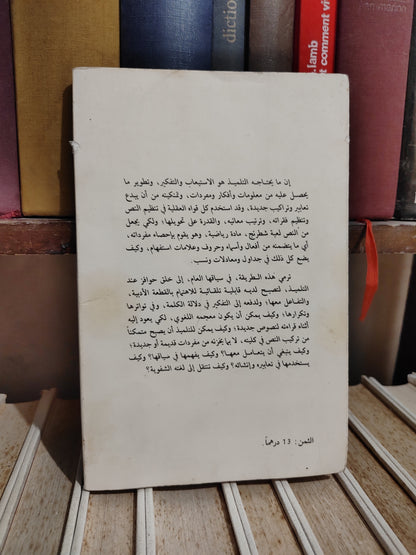 diction
.lamb
comment vi
en maroc
إن ما يحتاجه التلميذ هو الاستيعاب والتفكير، وتطوير ما
يحصل عليه من معلومات وأفكار ومفردات، وتمكينه من أن يبدع
تعابير وتراكيب جديدة، وقد استخدم كل قواه العقلية في تنظيم النص
وتنظيم فقراته، وترتيب معانيه، والقدرة على تحويلها؛ ولكي يجعل
من النص لعبة شطرنج، مادة رياضية، وهو يقوم بإحصاء مفرداته،
أي ما يتضمنه من أفعال وأسماء وحروف وعلامات استفهام، وكيف
يضع كل ذلك في جداول ومعادلات ونسب.
ترمي هذه الطريقة، في سياقها العام، إلى خلق حوافز عند
التلميذ، لتصبح لديه قابلية تلقائية للاهتمام بالقطعة الأدبية،
والتفاعل معها؛ ولدفعه إلى التفكير في دلالة الكلمة، وفي تواترها
وتكرارها؛ وكيف يمكن أن يكون معجمه اللغوي، لكي يعود إليه
أثناء قراءته لنصوص جديدة؛ وكيف يمكن للتلميذ أن يصبح متمكناً
من تركيب النص في كليته، لا بما يخزنه من مفردات قديمة أو جديدة؛
وكيف ينبغي أن يتعامل معها؟ وكيف يفهمها في سياقها؟ وكيف
يستخدمها في تعابيره وإنشائه؟ وكيف تنتقل إلى لغته الشفوية؟
الثمن : 13 درهماً.